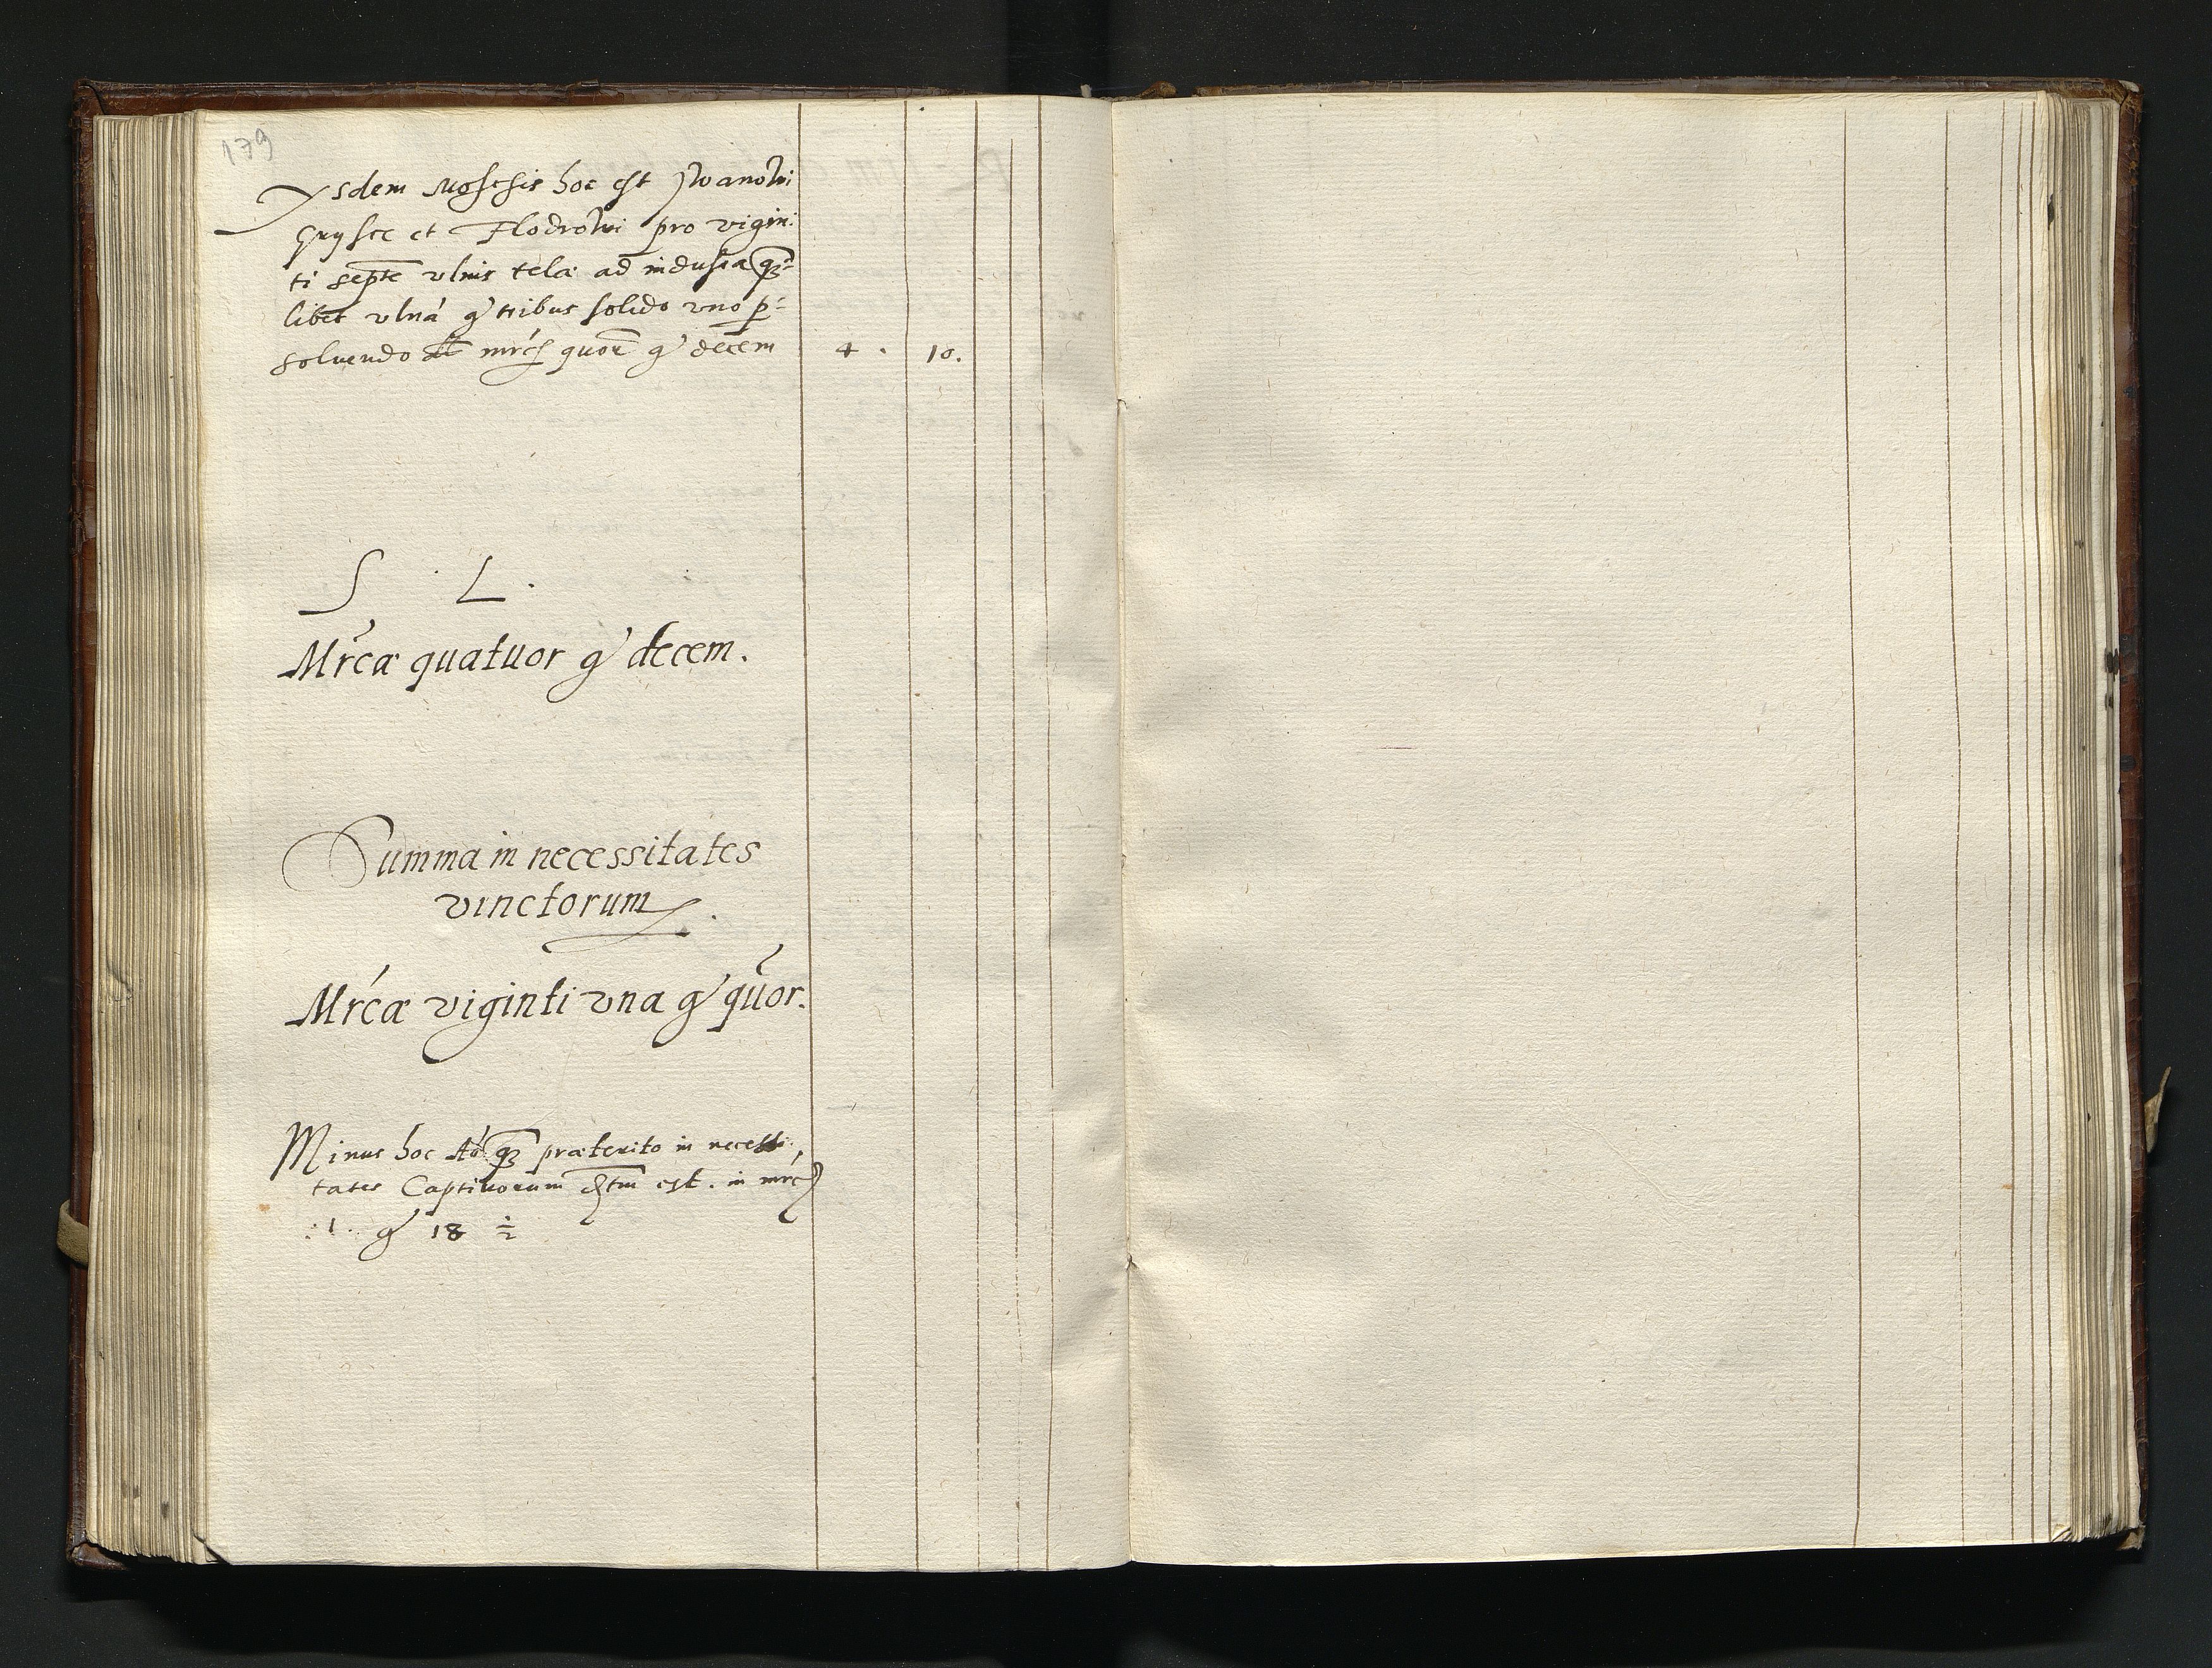 179
Ysdem Moschis hoc est Iwanowi
Gryscæ et Flodrowi pro vigin:
ti septē ulnis telæ ad indusia quā
libet ulnā gͬ tribus solido uno p̱:
soluendo mrcis quor gͬ decem 4. 10.
S. L.
Mrcæ quatuor gͬ decem.
Summa in necessitates
vinctorum.
Mrcæ viginti vna gͬ quor.
Minus hoc qꝫ præterito in necessi,
tates Captiuorum est. in mrcis
:1. gͬ 18 ½